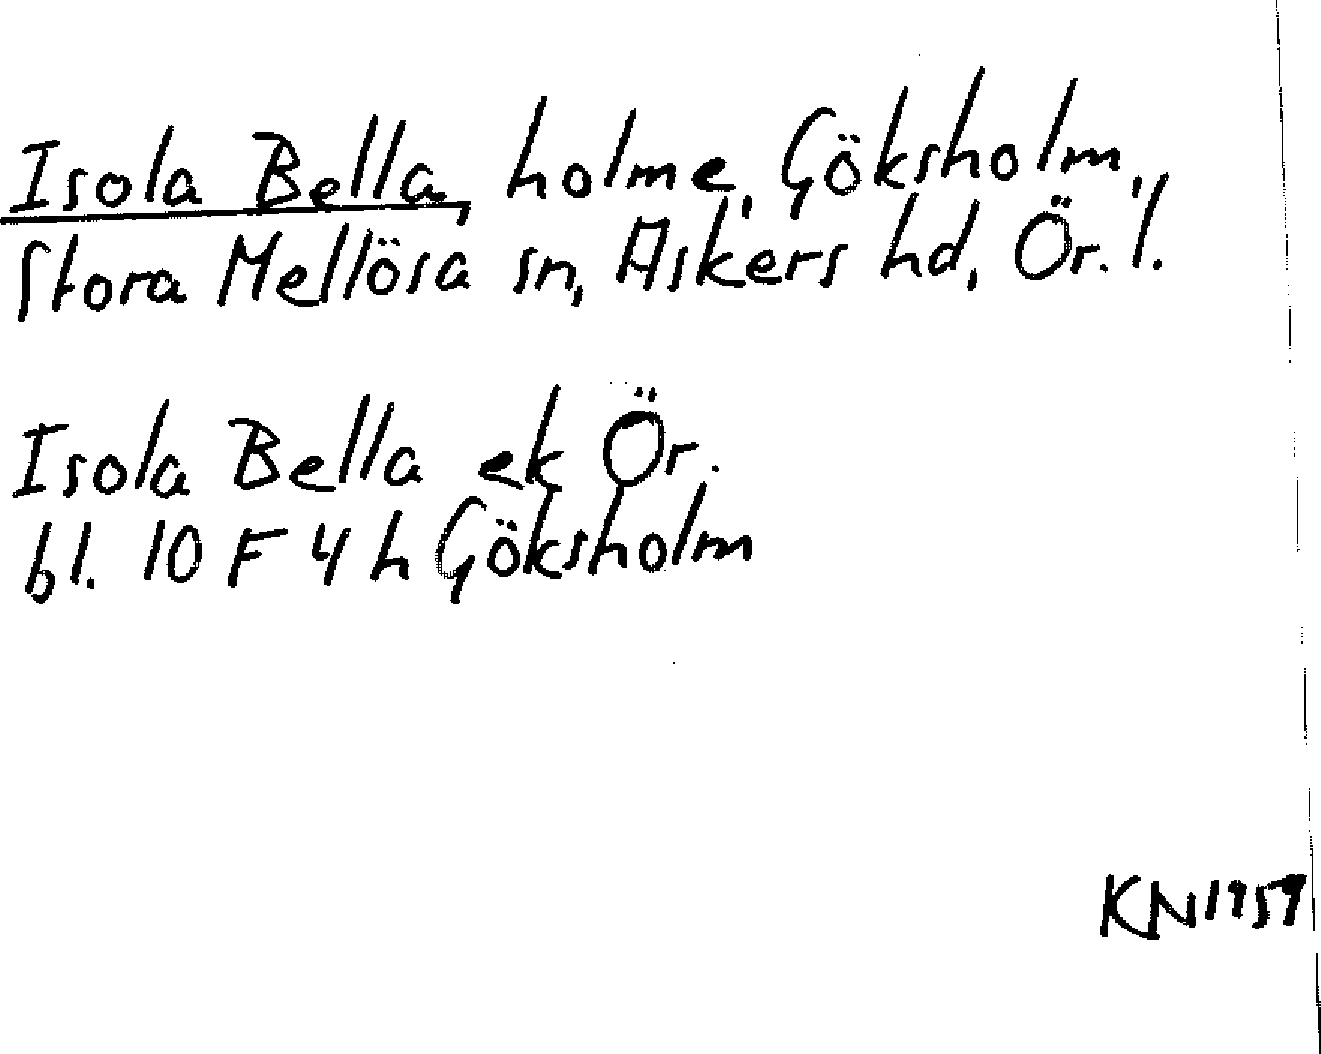 Isola Bella, holme, Göksholm,
Stora Mellösa sn, Askers hd, Ör. l.
Isola Bella ek Ör.
bl. 10 F 4 h Göksholm
KN 1959